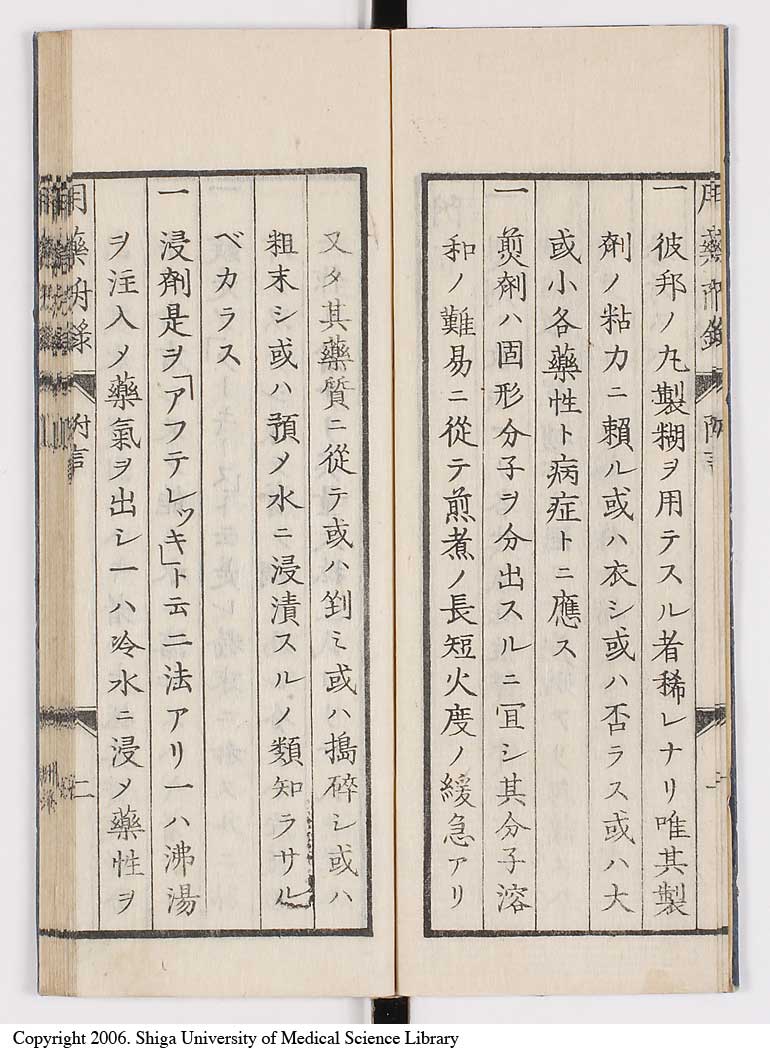 一 彼邦ノ丸製糊ヲ用テスル者稀レナリ唯其製
劑ノ粘力ニ賴ル或ハ衣シ或ハ否ラス或ハ大
或小各藥性ト病症トニ應ス
一 煎劑ハ固形分子ヲ分出スルニ冝シ其分子溶
和ノ難易ニ從テ煎煮ノ長短火度ノ緩急アリ
又タ其藥質ニ從テ或ハ剉ミ或ハ搗碎シ或ハ
粗末シ或ハ預メ水ニ浸漬スルノ類知ラサル
ベカラス
一 浸劑是ヲ「アフテレッキ」ト云二法アリ一ハ沸湯
ヲ注入メ藥氣ヲ出シ一ハ冷水ニ浸メ藥性ヲ
附言
二
Copyright 2006. Shiga University of Medical Science Library